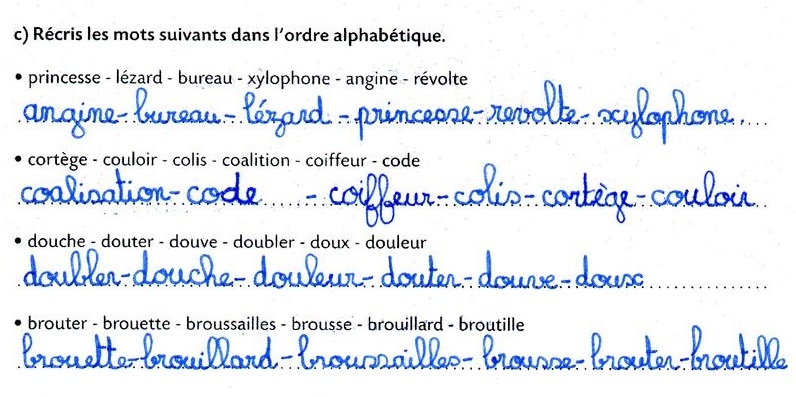 c) Récris les mots suivants dans l'ordre alphabétique.
• princesse - lézard - bureau - xylophone - angine - révolte
angine - bureau - lézard - princesse - revolte - xylophone.
• cortège - couloir - colis - coalition - coiffeur - code
coalisation - code - coiffeur - colis - cortège - couloir
• douche - douter - douve - doubler - doux - douleur
doubler - douche - douleur - douter - douve - doux
• brouter - brouette - broussailles - brousse - brouillard - broutille
brouette - brouillard - broussailles - brousse - brouter - broutille